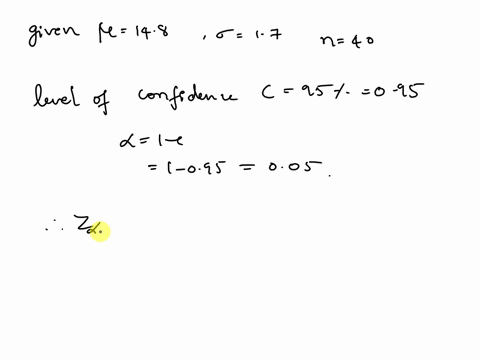 given μ = 14.8 , σ = 1.7 n = 40
level of confidence C = 95% = 0.95
α = 1-c
= 1-0.95 = 0.05.
∴ Zα